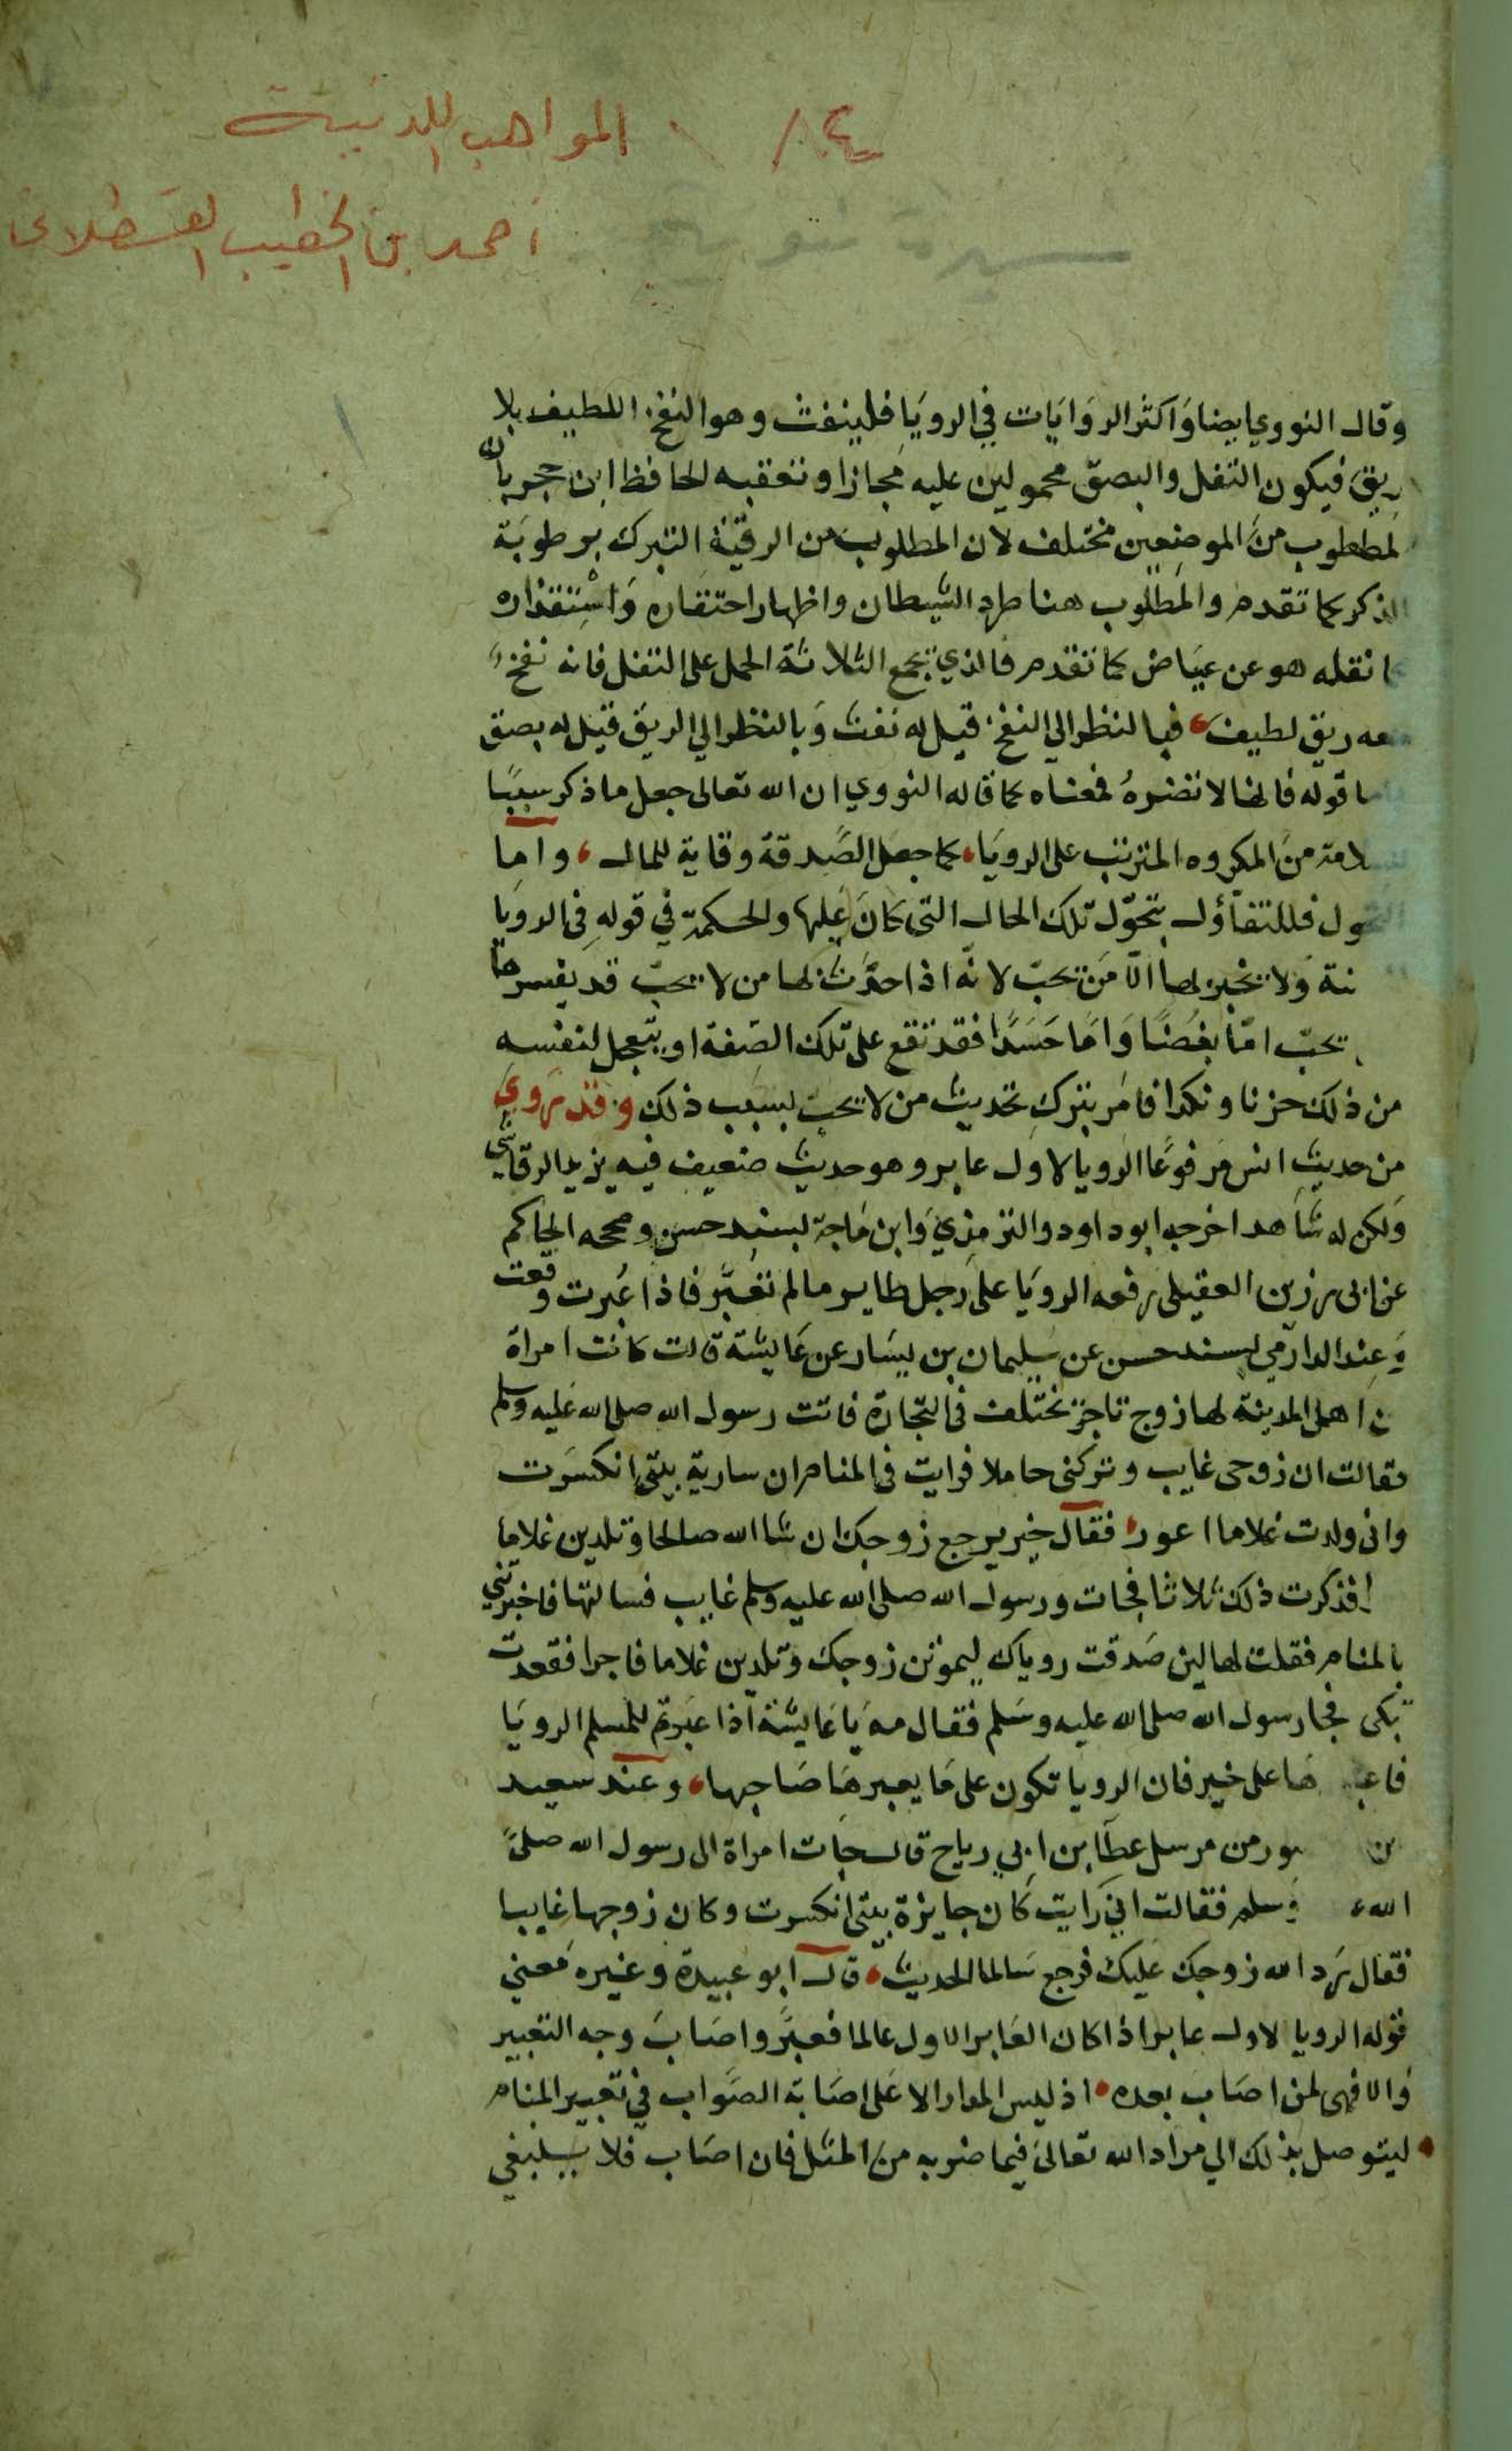 ١٨٤ المواهب اللدنية
احمد بن الخطيب القسطلاني
سيرة نبوية
وقال النووي ايضا وَاكثر الروَايَات في الرويَا فلينفث وهو النفخ اللطيف بلا
ريق فيكون التفل والبصق محمولين عليه مَجازا وتعقبه الحافظ ابن حجر بان
لمطلوب منَ الموضعين مختلف لان المطلوب من الرقيَة التبرك برطوبَة
الذكر كما تقدم والمَطلوب هنا طرد الشيطان واظهار احتقاره وَاسْتقذاره
كا نقله هو عن عيَاض كما تقدم فالذي يجمع الثلاثة الحمل على التفل فانه نفخ
معه ريق لطيف فبالنظر الي النفخ قيل له نفث وَبالنظر الي الريق قيل له بصق
ما قوله فانها لا تضرهُ فمعناه كما قاله النووي ان الله تعالى جعل ما ذكر سببًا
لامة منَ المكروه المترتب على الرويَا كما جعل الصَّدقة وقاية للمال واما
التحول فللتفاؤل بتحوّل تلك الحال التى كَانَ عَليها والحكمة في قولهِ فى الرويَا
نة وَلا يخبر بها الّا مَن يحبّ لانّه اذا حدَّثَ بها من لا يحبّ قد يفسرها
يحبّ امّا بغضًا وَامَا حَسَدًا فقد تقع على تلك الصّفة او يتعجل لنفسه
من ذلك حزنا ونكدا فامَر بتركِ تحديث من لا يحبّ بسبب ذلك وقد رَوي
من حديث انس مَرفوعًا الرويا لاول عابر وهو حديث ضعيف فيه يزيد الرقاشي
وَلكن له شاهد اخرجه ابو داود والترمذيّ وَابن مَاجة بسند حسن وصححه الحاكم
عن ابى رزين العقيلى رفعه الرويَا على رَجل طاير ما لم تعَبَّر فاذا عُبرت وقعت
وَعند الدارمي بسند حسن عن سليمان بن يسَار عن عَايشة قالت كانت امراة
ن اهل المدينة لها زوج تاجر يختلف في التجارة فاتت رسول الله صلى الله عَليه وسلم
فقالت ان زوجى غايب وتركنى حاملا فرايت في المنام ان سارية بيتى انكسَرت
وانى ولدت غلاما اعور فقال خير يرجع زوجك ان شا الله صالحا وتلدين غلاما
را فذكرت ذلك ثلاثا فجات ورسول الله صلى الله عليه وسلم غايب فسالتها فاخبرتني
بالمنام فقلت لها لين صَدقت روياك ليموتن زوجك وتلدين غلاما فاجرا فقعدت
تبكى فجا رسول الله صلى الله عليه وسَلم فقال مه يَا عَايشة اذا عبَرتم للمسلم الرويَا
فاعبروها على خير فان الرويا تكون على مَا يعبرهَا صَاحبها وعند سعيد
بن ـور من مرسل عطَا بن ابي رباح قال جَات امراة الى رسول الله صلى
الله ع وَسلم فقالت اني رَايت كَان جايزة بيتى انكسرت وكان زوجها غايبا
فقال رَد الله زوجك عَليك فرجع سَالما الحديث قال ابو عبيدة وغيره معنى
قوله الرويا لاول عابر اذا كان العَابر الاول عالما فعبَّر واصَابَ وجه التعبير
وَالا فهى لمن اصَاب بعده اذ ليس المدار الا عَلى اصَابة الصَّواب في تعبير المنام
ليتوصل بذلك الي مراد الله تعالىَ فيما ضربه من المثل فان اصَاب فلا ينبغي